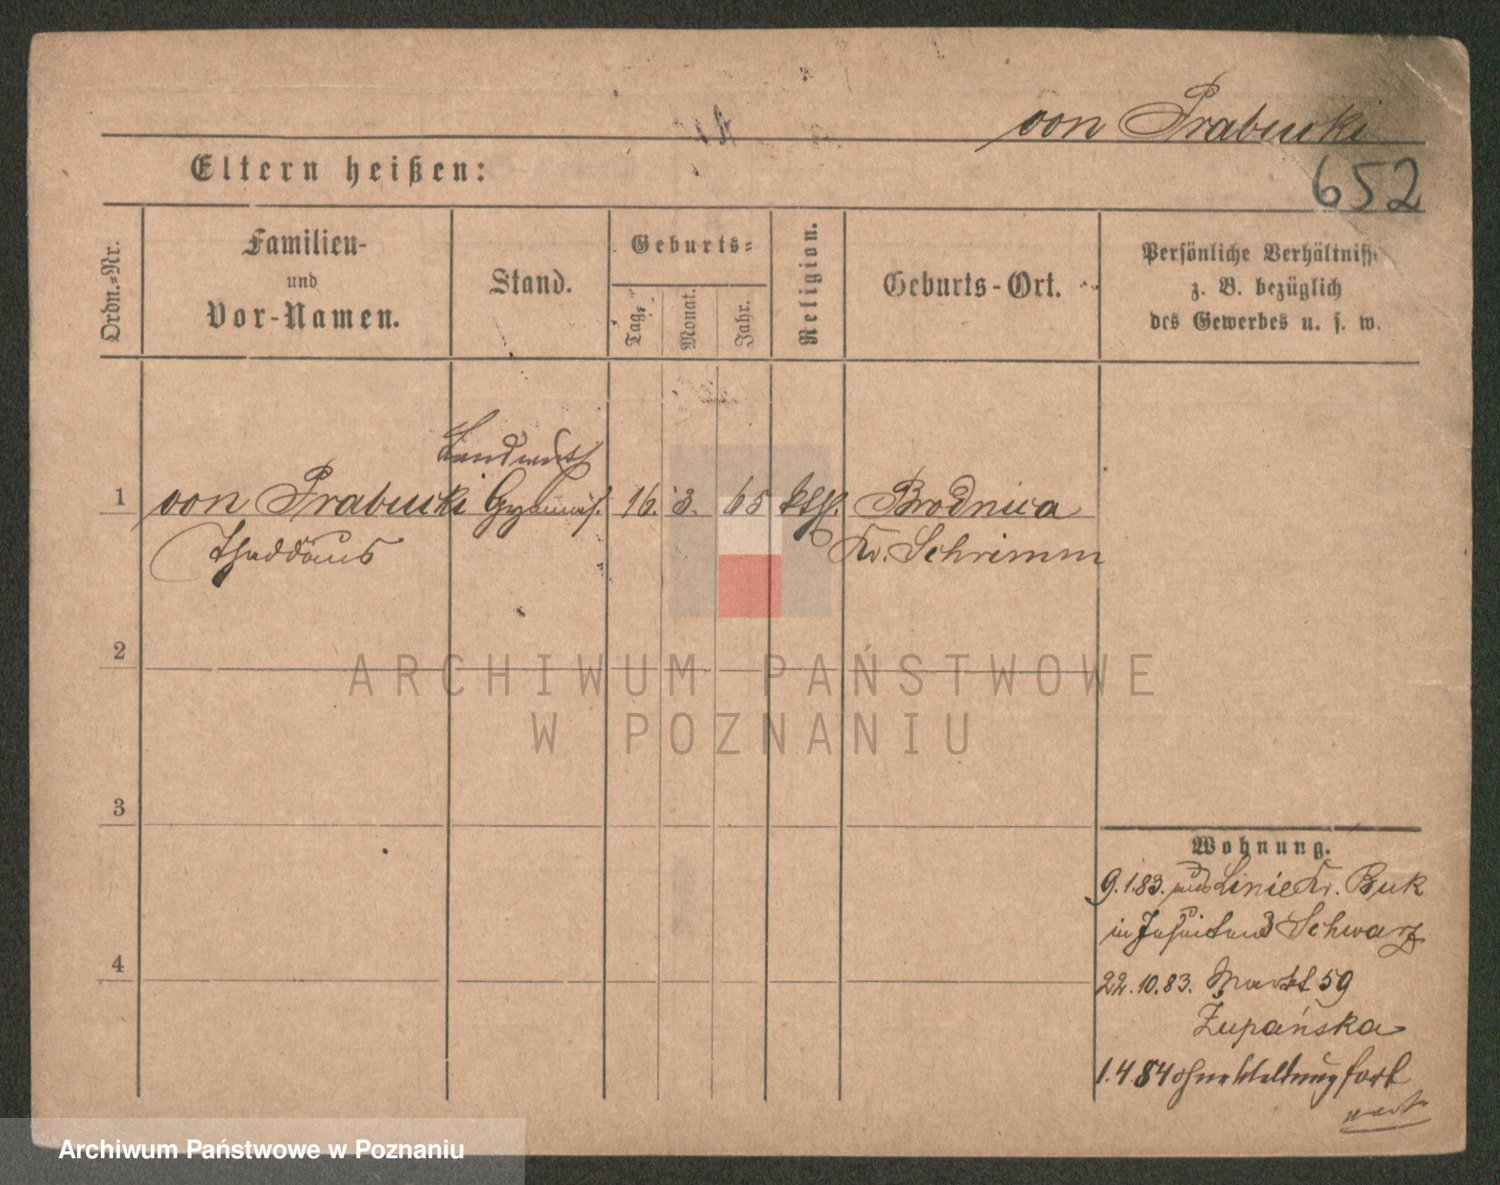 von Prabucki
Eltern heißen:
652
Ordn.-Nr.
Familien-
und
Vor-Namen.
Stand.
Geburts-
Tag.
Monat.
Jahr.
Religion.
Geburts-Ort.
Persönliche Verhältniss
z. B. bezüglich
des Gewerbes u. s. w.
Landwirt
1 von Prabucki Gymnas. 16. 3. 65 kth. Brodnica
Thaddäus Kr. Schrimm
2
3
4
ARCHIWUM PAŃSTWOWE
W POZNANIU
Wohnung.
9.1.83. aus Linie Kr. Buk
in Schwarz
22.10.83. Markt 59
Żupańska
1.4.84 ohne Meldung fort
Archiwum Państwowe w Poznaniu